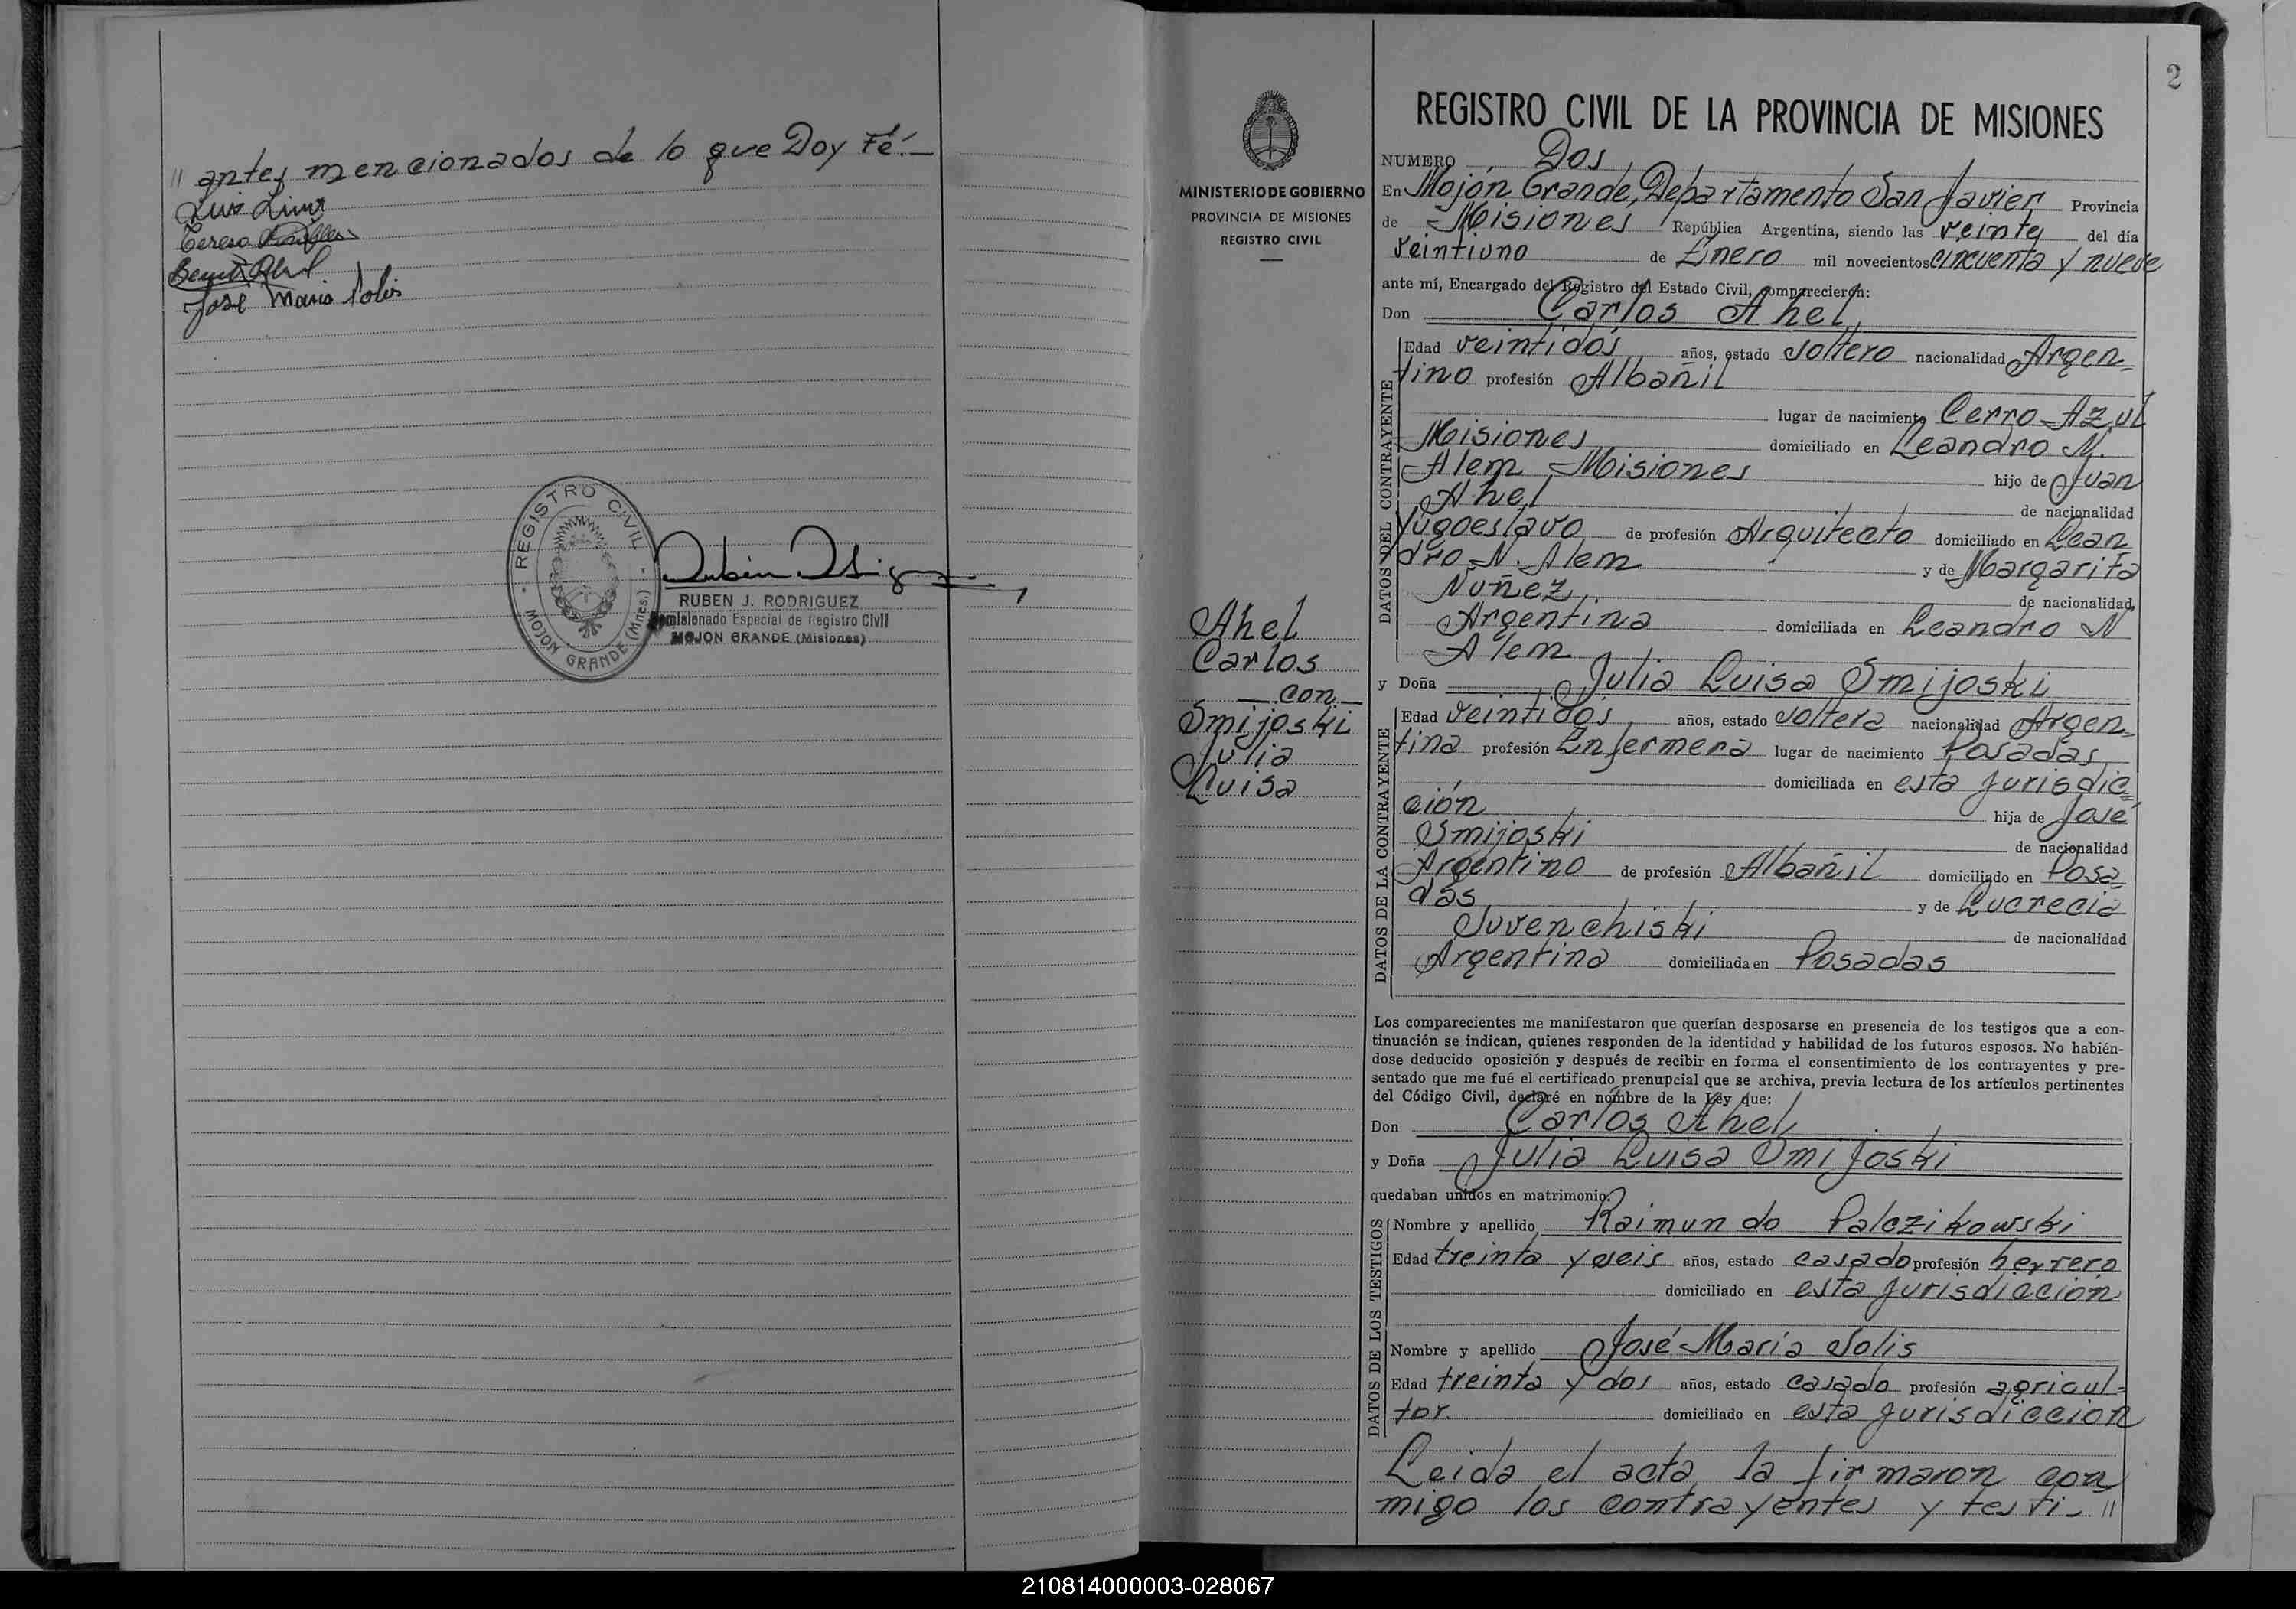 " antes mencionados de lo que Doy Fé.—
Luis
Teresa
Benito Ahel
José Maria Solis
REGISTRO CIVIL
MOJON GRANDE (Mnes.)
RUBEN J. RODRIGUEZ
Comisionado Especial de Registro Civil
MOJON GRANDE (Misiones)
2
MINISTERIO DE GOBIERNO
PROVINCIA DE MISIONES
REGISTRO CIVIL
Ahel
Carlos
— con —
Smijoski
Julia
Luisa
REGISTRO CIVIL DE LA PROVINCIA DE MISIONES
NUMERO Dos
En Mojón Grande, Departamento San Javier Provincia
de Misiones República Argentina, siendo las veinte del día
veintiuno de Enero mil novecientos cincuenta y nueve
ante mí, Encargado del Registro del Estado Civil, comparecieron:
Don Carlos Ahel
Edad veintidos años, estado soltero nacionalidad Argen=
tino profesión Albañil
lugar de nacimiento Cerro Azul
Misiones domiciliado en Leandro N.
Alem Misiones hijo de Juan
Ahel de nacionalidad
Yugoeslavo de profesión Arquitecto domiciliado en Lean
dro N. Alem y de Margarita
Nuñez, de nacionalidad
Argentina domiciliada en Leandro N
Alem
y Doña Julia Luisa Smijoski
Edad veintidos años, estado soltera nacionalidad Argen=
tina profesión Enfermera lugar de nacimiento Posadas
domiciliada en esta jurisdic=
ción hija de José
Smijoski de nacionalidad
Argentino de profesión Albañil domiciliado en Posa=
das y de Lucrecia
Suvenchiski de nacionalidad
Argentina domiciliada en Posadas
Los comparecientes me manifestaron que querían desposarse en presencia de los testigos que a con-
tinuación se indican, quienes responden de la identidad y habilidad de los futuros esposos. No habién-
dose deducido oposición y después de recibir en forma el consentimiento de los contrayentes y pre-
sentado que me fué el certificado prenupcial que se archiva, previa lectura de los artículos pertinentes
del Código Civil, declaré en nombre de la Ley que:
Don Carlos Ahel
y Doña Julia Luisa Smijoski
quedaban unidos en matrimonio.
Nombre y apellido Raimundo Palczikowski
Edad treinta y seis años, estado casado profesión herrero
domiciliado en esta jurisdicción
Nombre y apellido José María Solis
Edad treinta y dos años, estado casado profesión agricul=
tor. domiciliado en esta jurisdicción
Leida el acta la firmaron con
migo los contrayentes y testi- "
DATOS DEL CONTRAYENTE
DATOS DE LA CONTRAYENTE
DATOS DE LOS TESTIGOS
210814000003-028067